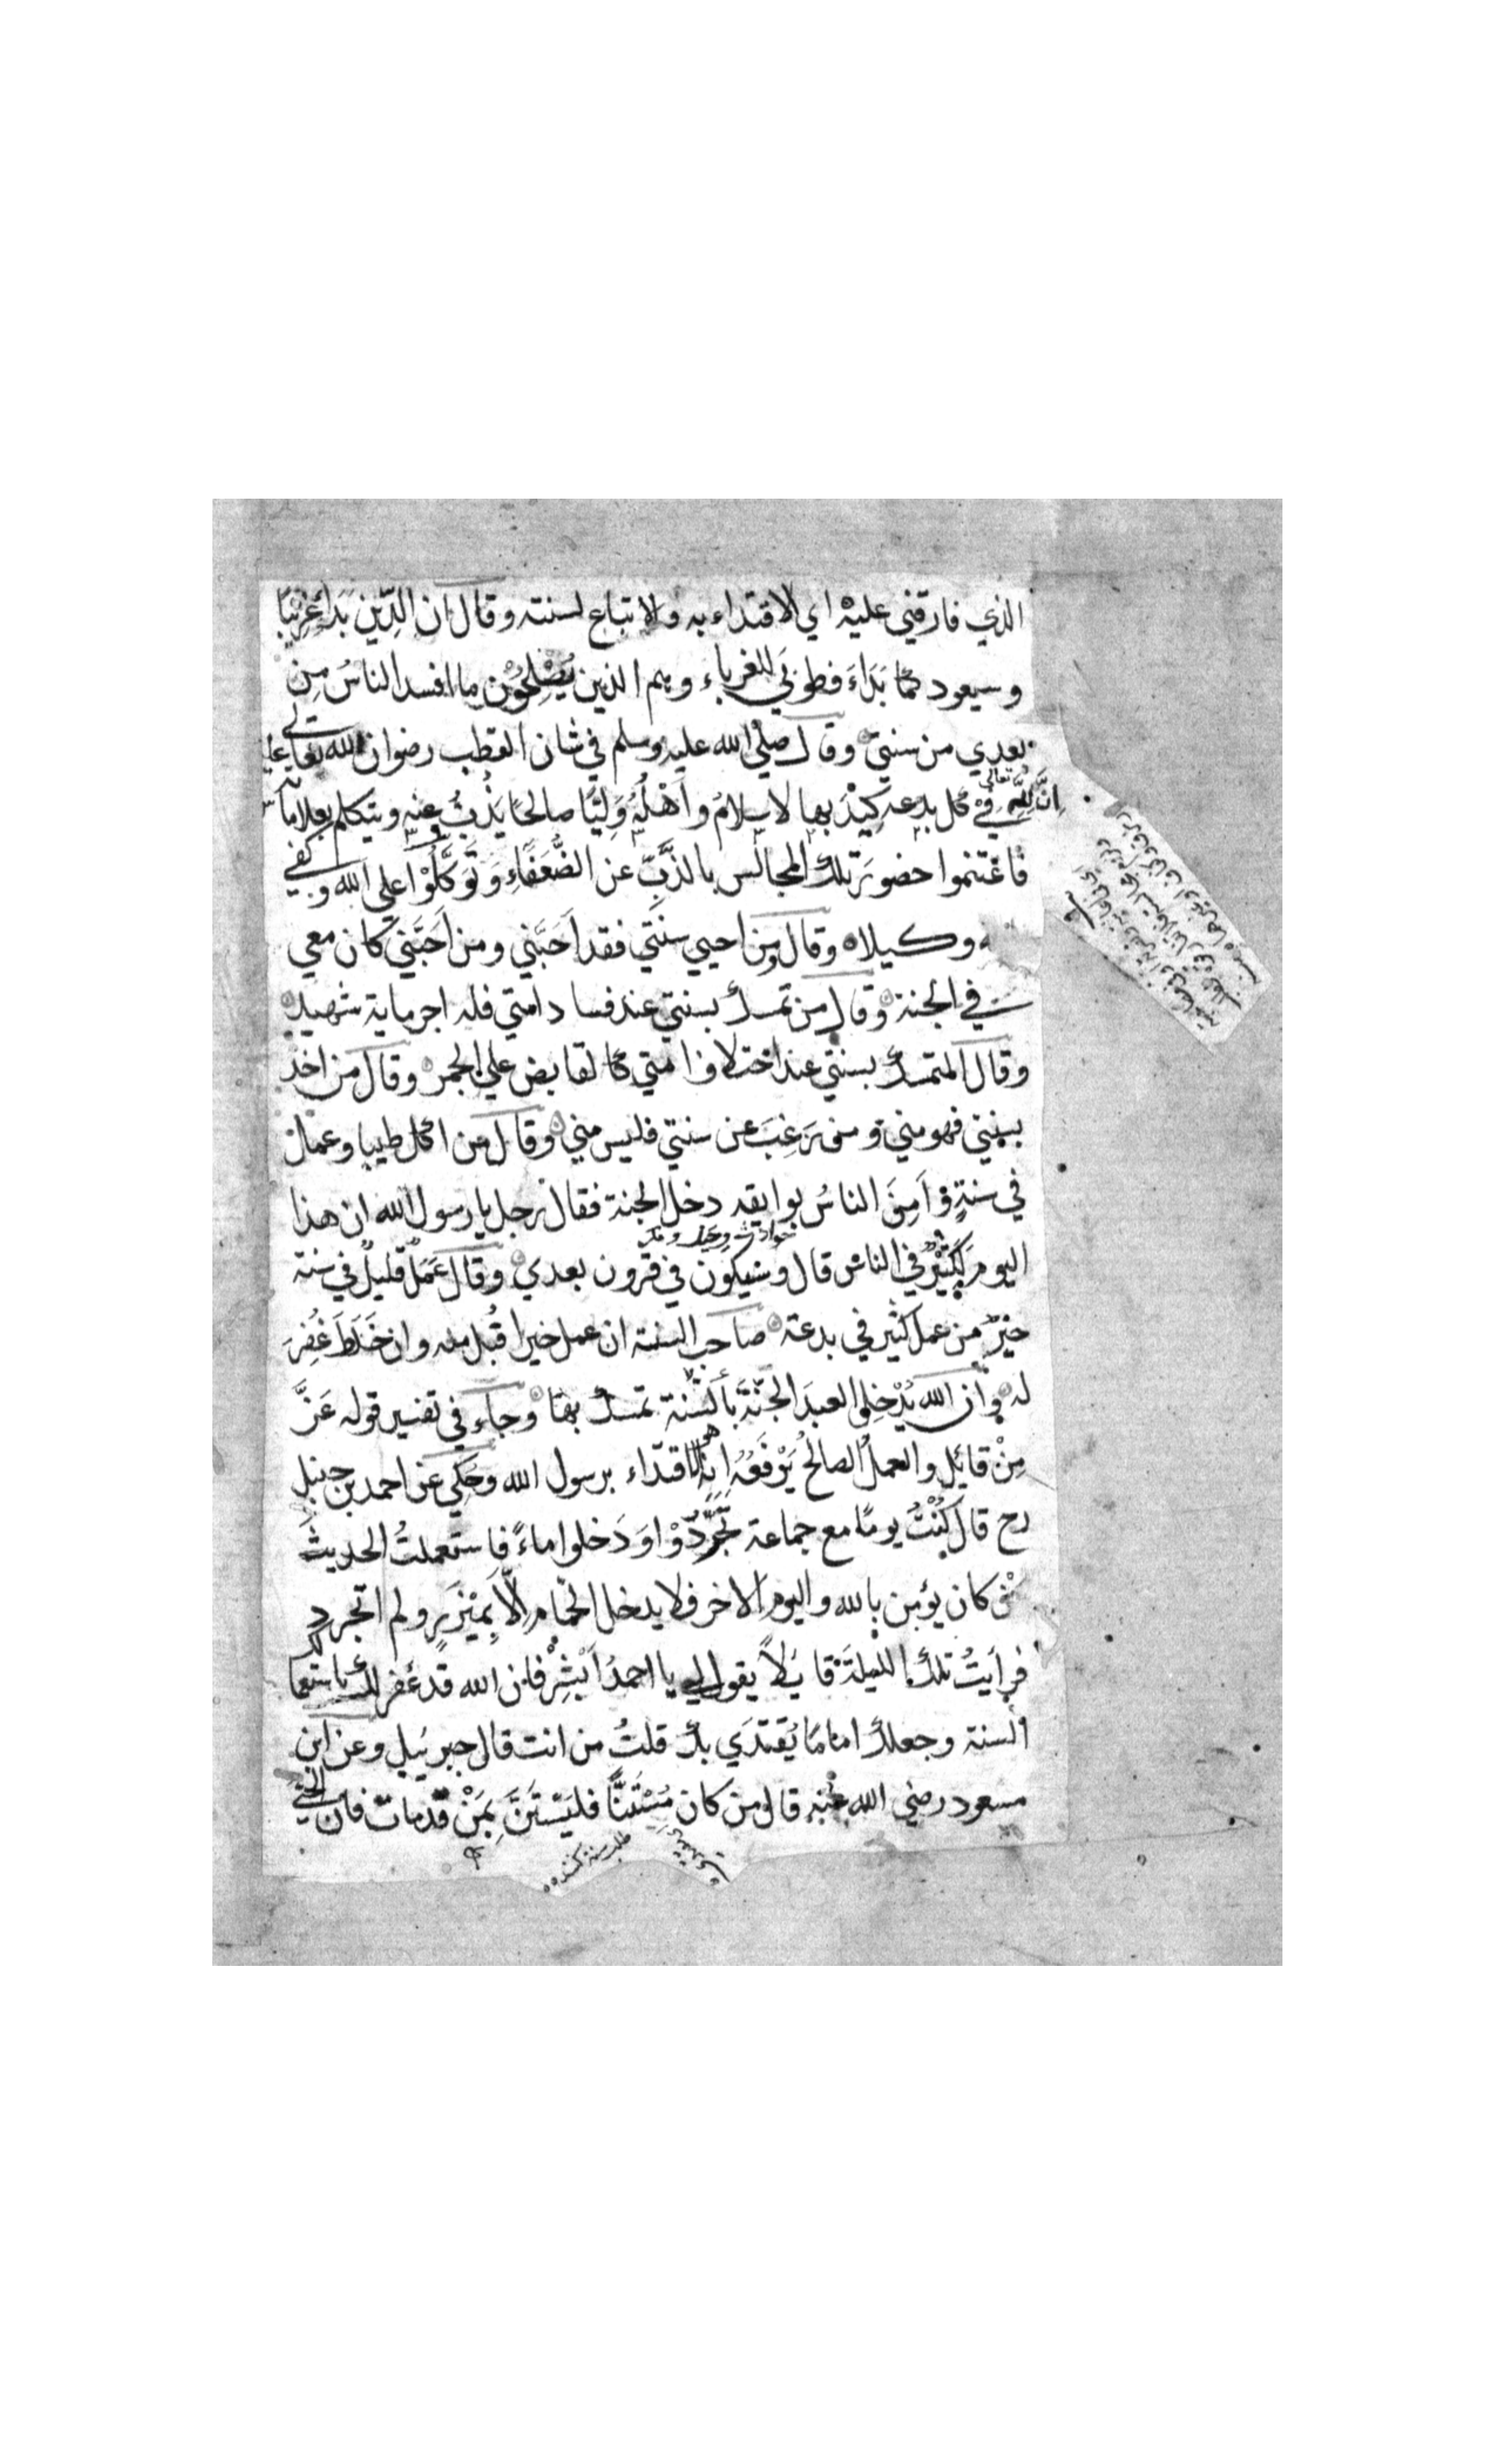 الذي فارقني عليه اي الاقتداء به والاتباع لسنته وقال ان الدِّين بَدَأَ غريبًا
وسيعود كما بَدَاءَ فطوبَي للغرباء وهم الذين يُصْلِحُوْن ما افسد الناسُ مِن
بعدي من سنتي وقال صلي الله عليه وسلم في شان القطب رضوان الله تعالي عليه
اِنَّ لِلّهِ تعالي في كل بدعه كِيْدَ بها الاسلامُ واَهْلُهُ وَلِيًّا صالحًا يَذُبُّ عنه ويتكلم بعلاماته
فاغتنموا حضورَ تلك المجالس بالذَّبِّ عن الضُّعَفَاءِ وَتَوَكَّلُوْا علي الله وكفي
وكيلا وقال من احيي سنتي فقد اَحَبَّني ومن اَحَبَّنِي كان معي
في الجنة وقال من تمسك بسنتي عند فساد امتي فله اجر ماية شهيد
وقال المتمسك بسنتي عند اختلاف امتي كالقابض علي الجمر وقال من اخذ
بسنتي فهو مني ومن رَغِبَ عن سنتي فليس مني وقال من اكل طيبا وعمل
في سنةٍ واَمِنَ الناسُ بوايقه دخل الجنة فقال رجل يا رسول الله ان هذا
اليوم لَكَثِيْرٌ في الناس قال وسيكون في قرون بعدي وقال عَمَلٌ قليلٌ في سنة
خيرٌ من عمل كثير في بدعة صاحب السنة ان عمل خيرا قُبِل منه وان خَلَطَ غُفِرَ
له وان الله يُدْخِلُ العبدَ الجَنَّةَ بالسُّنة تمسك بها وجاء في تفسير قوله عَزَّ
مِنْ قائِلٍ والعملُ الصالحُ يَرْفَعُهُ اِنه الاقتداء برسول الله وحُكِي عن احمد بن حنبل
رح قال كُنْتُ يومًا مع جماعة تَجَرَّدُوْا وَدَخلوا ماءً فاستعملتُ الحديثَ
من كان يؤمن بالله واليوم الاخر فلا يدخل الحمام اِلّا بِمِيْزَرٍ ولم اتجرد
فرايتُ تلك الليلةَ قايلًا يقول لي يا احمدُ اَبْشِرْ فان الله قد غفر لك باستعمالك
السنة وجعلك امامًا يُقتدَي بك قلتُ من انت قال جبرئيل وعن ابن
مسعود رضي الله عنه قال من كان مُسْتَنًّا فليَسْتَنَّ بِمَنْ قد مات فان الحي